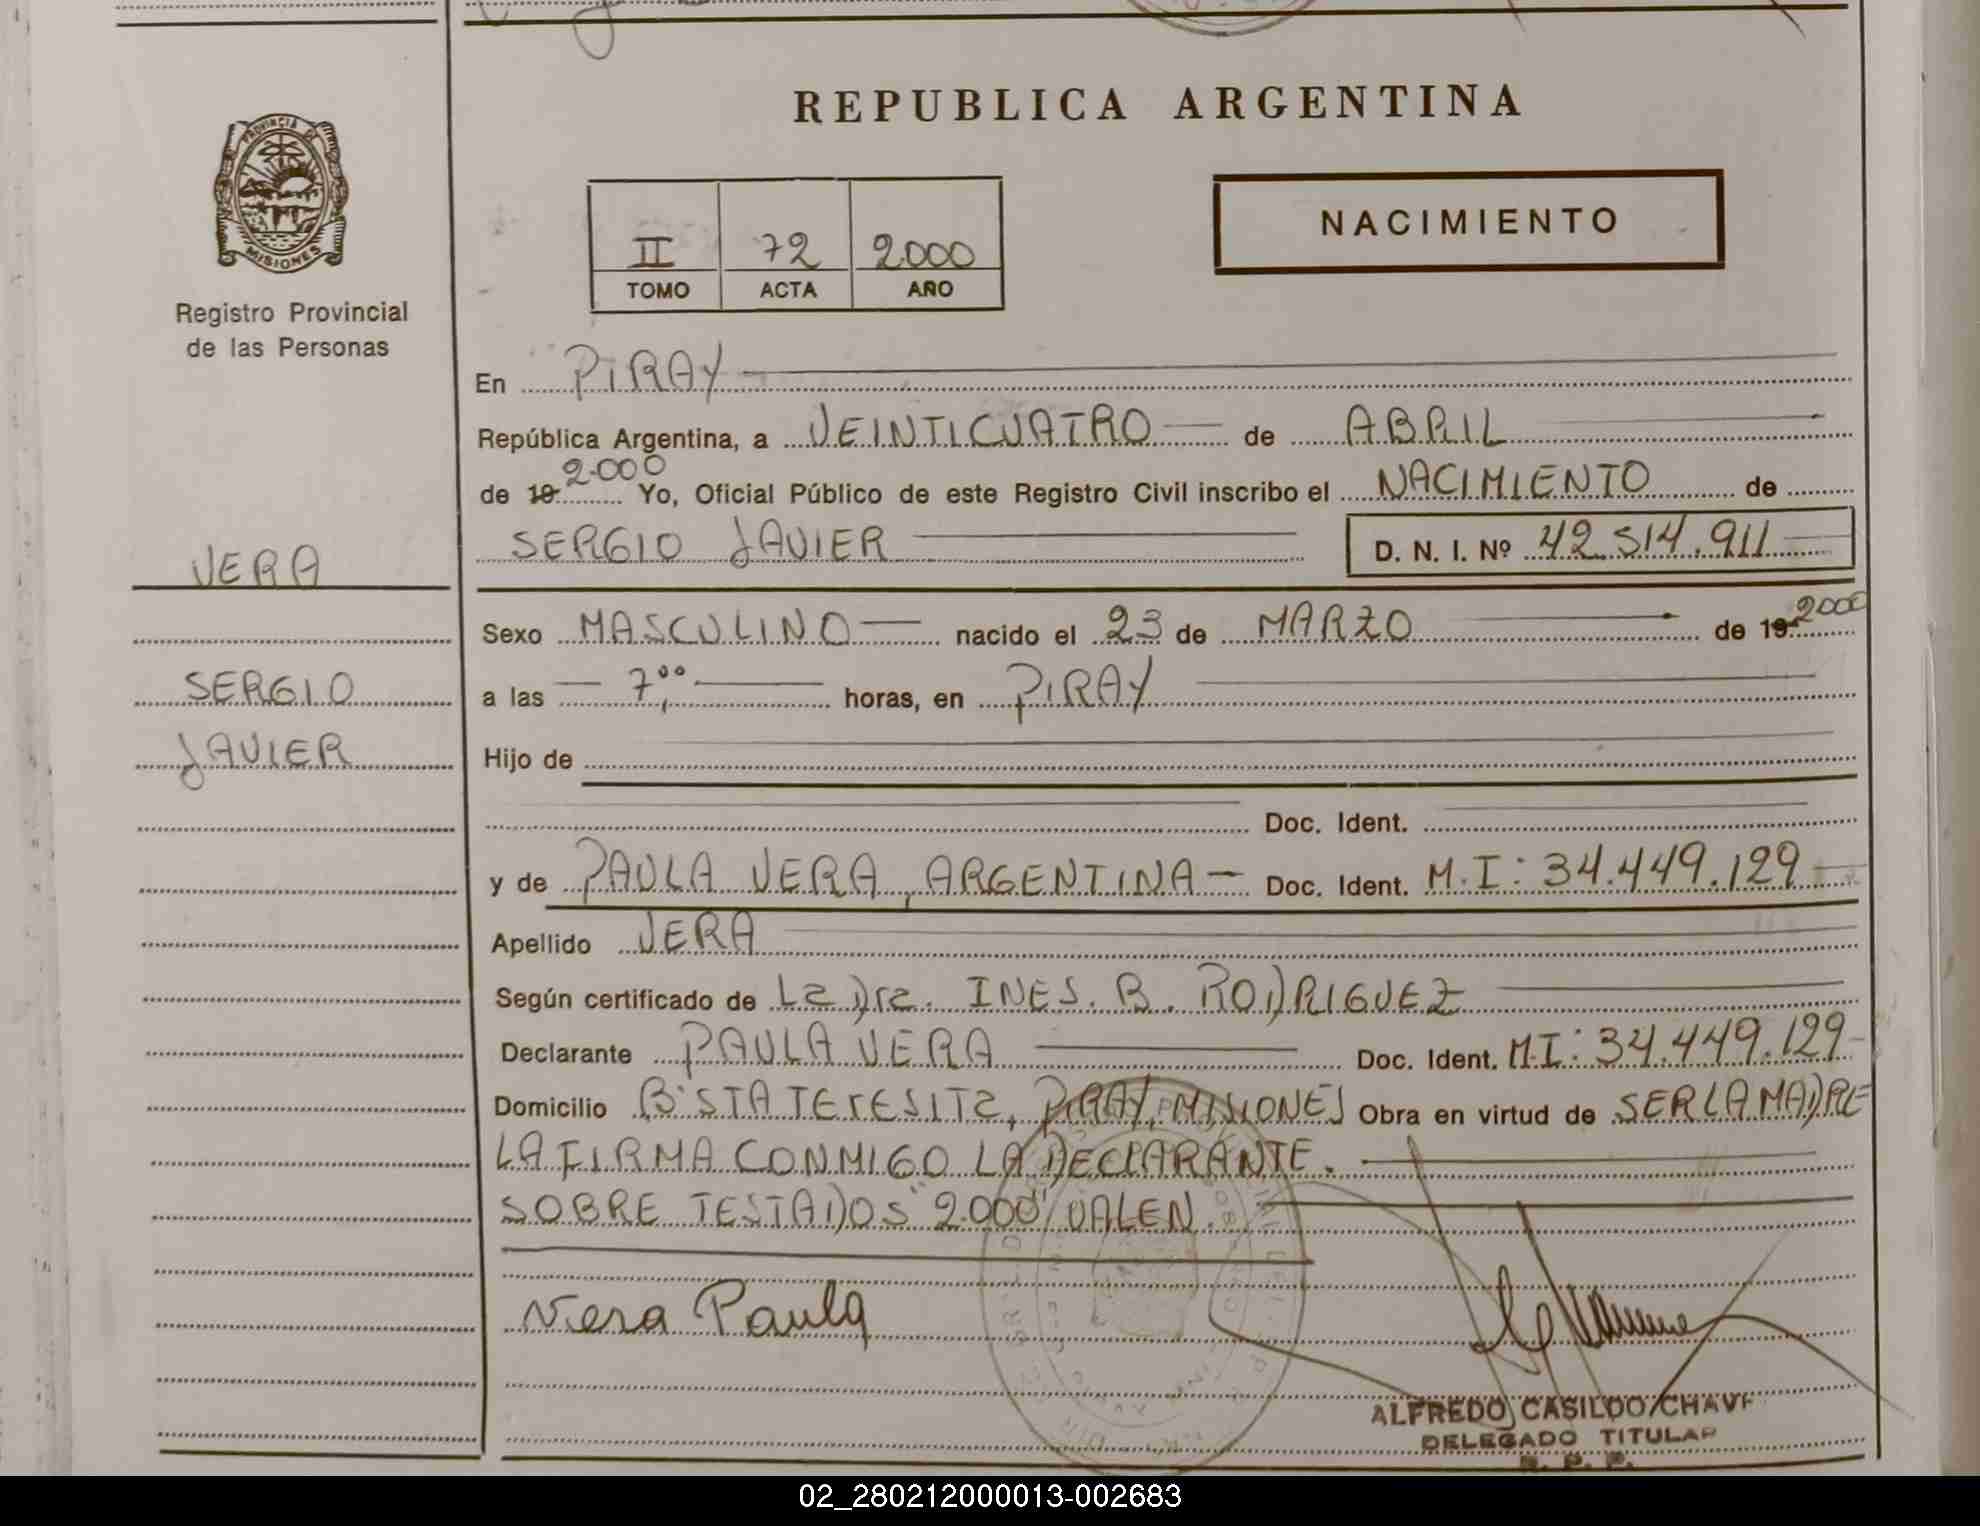 REPUBLICA ARGENTINA
PROVINCIA DE
MISIONES
Registro Provincial
de las Personas
II 72 2000
TOMO ACTA AÑO
NACIMIENTO
En PIRAY
República Argentina, a VEINTICUATRO de ABRIL
2.000
de 19 Yo, Oficial Público de este Registro Civil inscribo el NACIMIENTO de
SERGIO JAVIER D. N. I. Nº 42.514.911
VERA
Sexo MASCULINO nacido el 23 de MARZO de 19 2000
SERGIO
a las 7,00 horas, en PIRAY
JAVIER
Hijo de
Doc. Ident.
y de PAULA VERA, ARGENTINA Doc. Ident. M.I: 34.449.129
Apellido VERA
Según certificado de La Dra. INES. B. RODRIGUEZ
Declarante PAULA VERA Doc. Ident. M.I: 34.449.129
Domicilio Bº STA TERESITA, PIRAY, MISIONES Obra en virtud de SER LA MADRE
LA FIRMA CONMIGO LA DECLARANTE.
SOBRE TESTADOS "2.000" VALEN.
Vera Paula
ALFREDO CASILDO CHAVE
DELEGADO TITULAR
R. P. P.
02_280212000013-002683